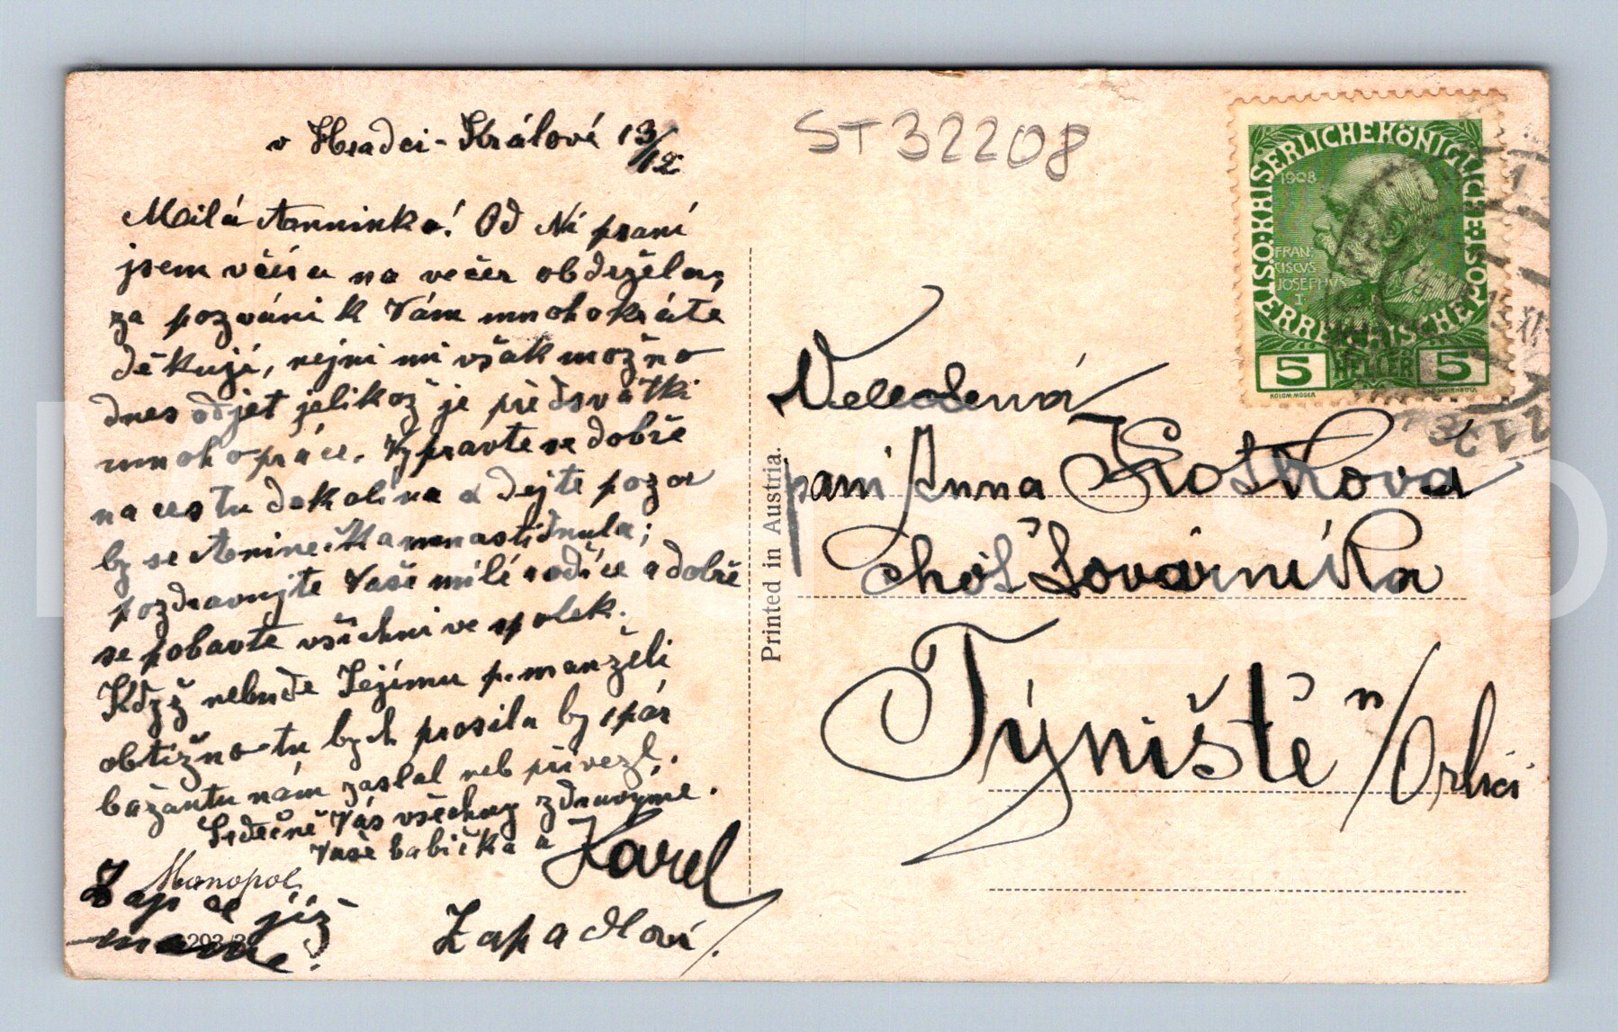 v Hradci-Králové 13/12
Milá Anninko! Od Ní psaní
jsem včera na večer obdržela,
za pozvání k Vám mnohokráte
děkuji, nejni mi však možno
dnes odjet jelikož je před svátki
mnoho práce. Vypravte se dobře
na cestu do kolína a dejte pozor
by se Aninečka nenastidnula;
pozdravujte Vaše milé rodiče a dobře
se pobavte všichni ve spolek.
Když nebude Jejímu p. manželi
obtížno tu bych prosila by pár
bažantu nám zaslal neb přivezl.
Srdečně Vás všechny zdravíme.
Vaše babička a Karel
Zapadlovi.
Monopol
203
již
máme!
ST32208
KAISERLICHE KÖNIGLICHE
ÖSTERREICHISCHE POST
1908
FRAN
CISCVS
JOSEPHVS
I
5 HELLER 5
KOLOM. MOSER
Printed in Austria.
Velectená
paní Anna Kotkova
choť továrníka
Týniště n/Orlicí